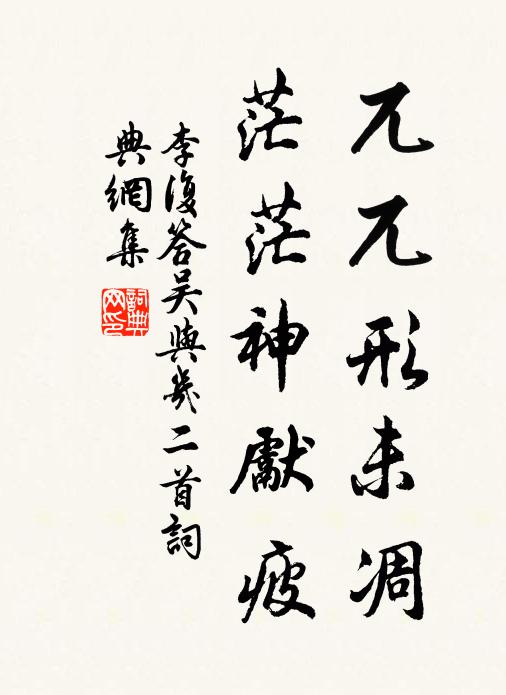 兀兀形未凋
茫茫神獻疲
李復答吳與幾二首詞
典網集
詞典網印